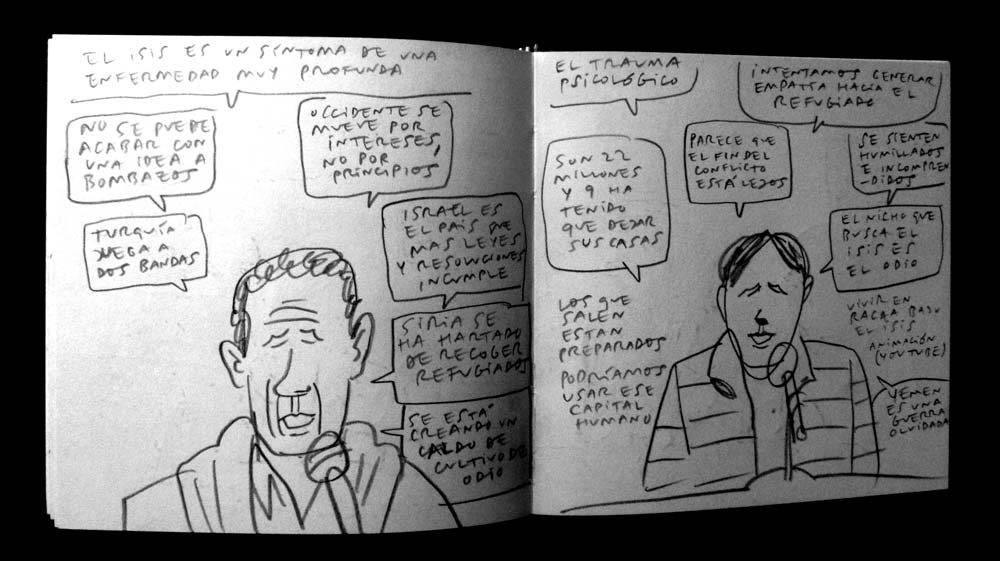 EL ISIS ES UN SÍNTOMA DE UNA
ENFERMEDAD MUY PROFUNDA
NO SE PUEDE
ACABAR CON
UNA IDEA A
BOMBAZOS
OCCIDENTE SE
MUEVE POR
INTERESES,
NO POR
PRINCIPIOS
TURQUÍA
JUEGA A
DOS BANDAS
ISRAEL ES
EL PAÍS QUE
MAS LEYES
Y RESOLUCIONES
INCUMPLE
SIRIA SE
HA HARTADO
DE RECOGER
REFUGIADOS
SE ESTÁ
CREANDO UN
CALDO DE
CULTIVO DE
ODIO
EL TRAUMA
PSICOLÓGICO
INTENTAMOS GENERAR
EMPATÍA HACIA EL
REFUGIADO
SON 22
MILLONES
Y 9 HA
TENIDO
QUE DEJAR
SUS CASAS
PARECE QUE
EL FIN DEL
CONFLICTO
ESTÁ LEJOS
SE SIENTEN
HUMILLADOS
E INCOMPREN
-DIDOS
EL NICHO QUE
BUSCA EL
ISIS ES
EL ODIO
LOS QUE
SALEN
ESTAN
PREPARADOS
PODRÍAMOS
USAR ESE
CAPITAL
HUMANO
VIVIR EN
RACAA BAJO
EL ISIS
ANIMACIÓN
(YOUTUBE)
YEMEN
ES UNA
GUERRA
OLVIDADA